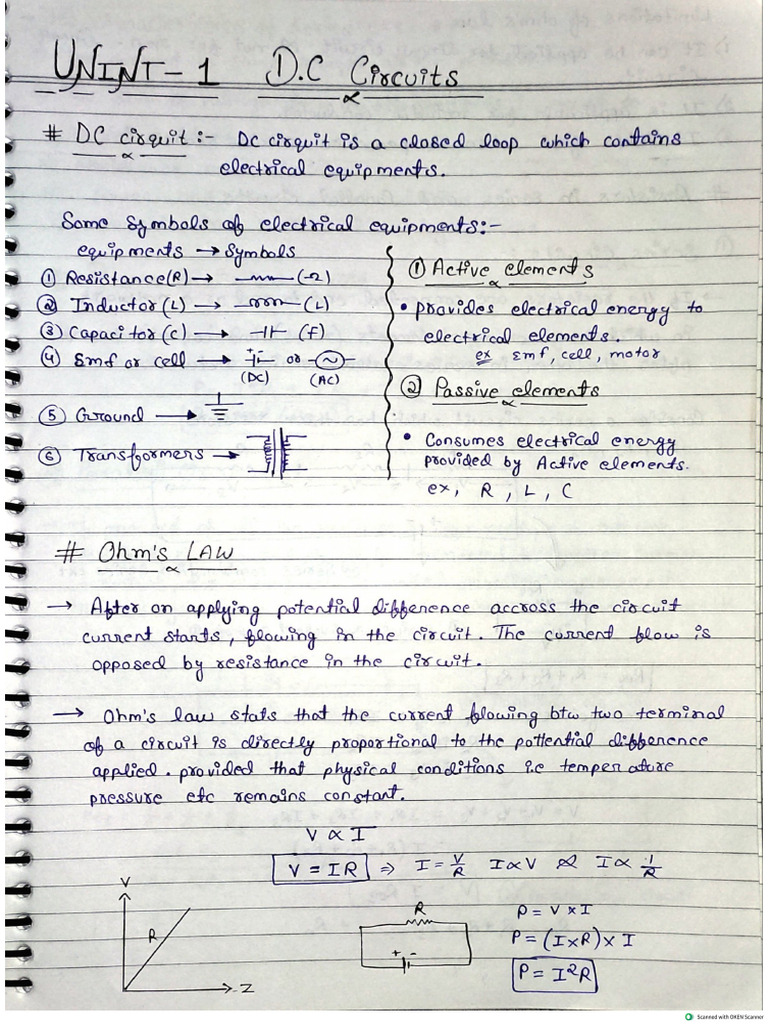 UNINT-1 D.C Circuits
# DC cirquit:- DC cirquit is a closed loop which contains
electrical equipments.
Some Symbols of electrical equipments:-
equipments → Symbols
① Resistance(R) → (Ω)
② Inductor (L) → (L)
③ Capacitor (C) → (F)
④ Emf or cell → + - or ~
(DC) (AC)
⑤ Ground →
⑥ Transformers →
① Active elements
• provides electrical energy to
electrical elements.
ex emf, cell, motor
② Passive elements
• Consumes electrical energy
provided by Active elements.
ex, R, L, C
# Ohm's LAW
→ After on applying potential difference accross the circuit
current starts, flowing in the circuit. The current flow is
opposed by resistance in the circuit.
→ Ohm's law stats that the current flowing btw two terminal
of a circuit is directly proportional to the pottential difference
applied. provided that physical conditions i.e temperature
pressure etc remains constant.
V ∝ I
V = IR ⇒ I = V/R I ∝ V & I ∝ 1/R
V
R
I
R
+ -
P = V × I
P = (I×R) × I
P = I²R
Scanned with OKEN Scanner